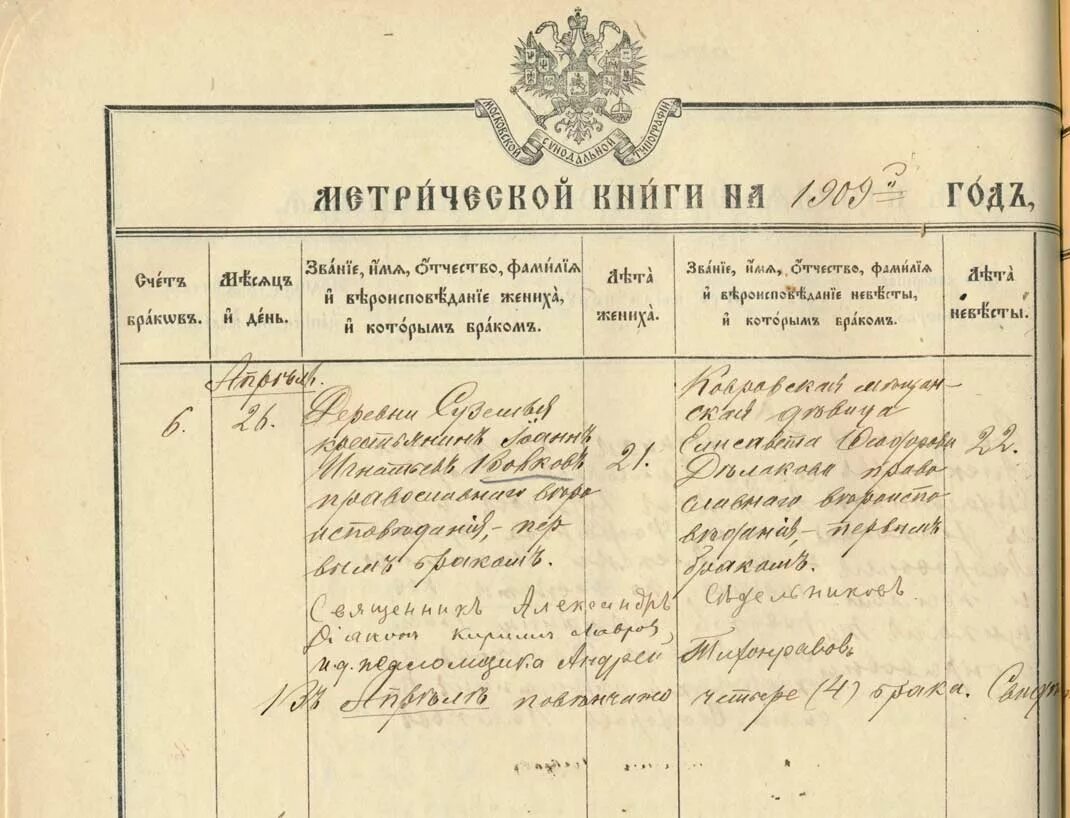 МОСКОВСКОЙ СѴНОДАЛЬНОЙ ТИПОГРАФІИ
МЕТРИ́ЧЕСКОЙ КНИ́ГИ НА 1909й ГО́ДЪ,
Сче́тъ бра́кѡвъ.
Мѣ́сяцъ и҆ де́нь.
Зва́нїе, и҆́мя, ѻ҆́тчество, фами́лїя и҆ вѣроисповѣ́данїе жениха̀, и҆ кото́рымъ бра́комъ.
Лѣта̀ жениха̀.
Зва́нїе, и҆́мя, ѻ҆́тчество, фами́лїя и҆ вѣроисповѣ́данїе невѣ́сты, и҆ кото́рымъ бра́комъ.
Лѣта̀ невѣ́сты.
Апрѣль.
6.
26.
Деревни
крестьянинъ Іоаннъ
Игнатьевъ Волковъ
православнаго вѣро
исповѣданія, – пер
вымъ бракомъ.
21.
Ковровская мѣщан-
ская дѣвица
Елисавета Ѳеодорова
православнаго вѣроиспо
вѣданія, – первымъ
бракомъ.
22.
Священникъ Александръ Сѣдельниковъ.
Діаконъ Кириллъ Лавровъ,
и.д. псаломщика Андрей Тихонравовъ
Въ Апрѣлѣ повѣнчано четыре (4) брака.